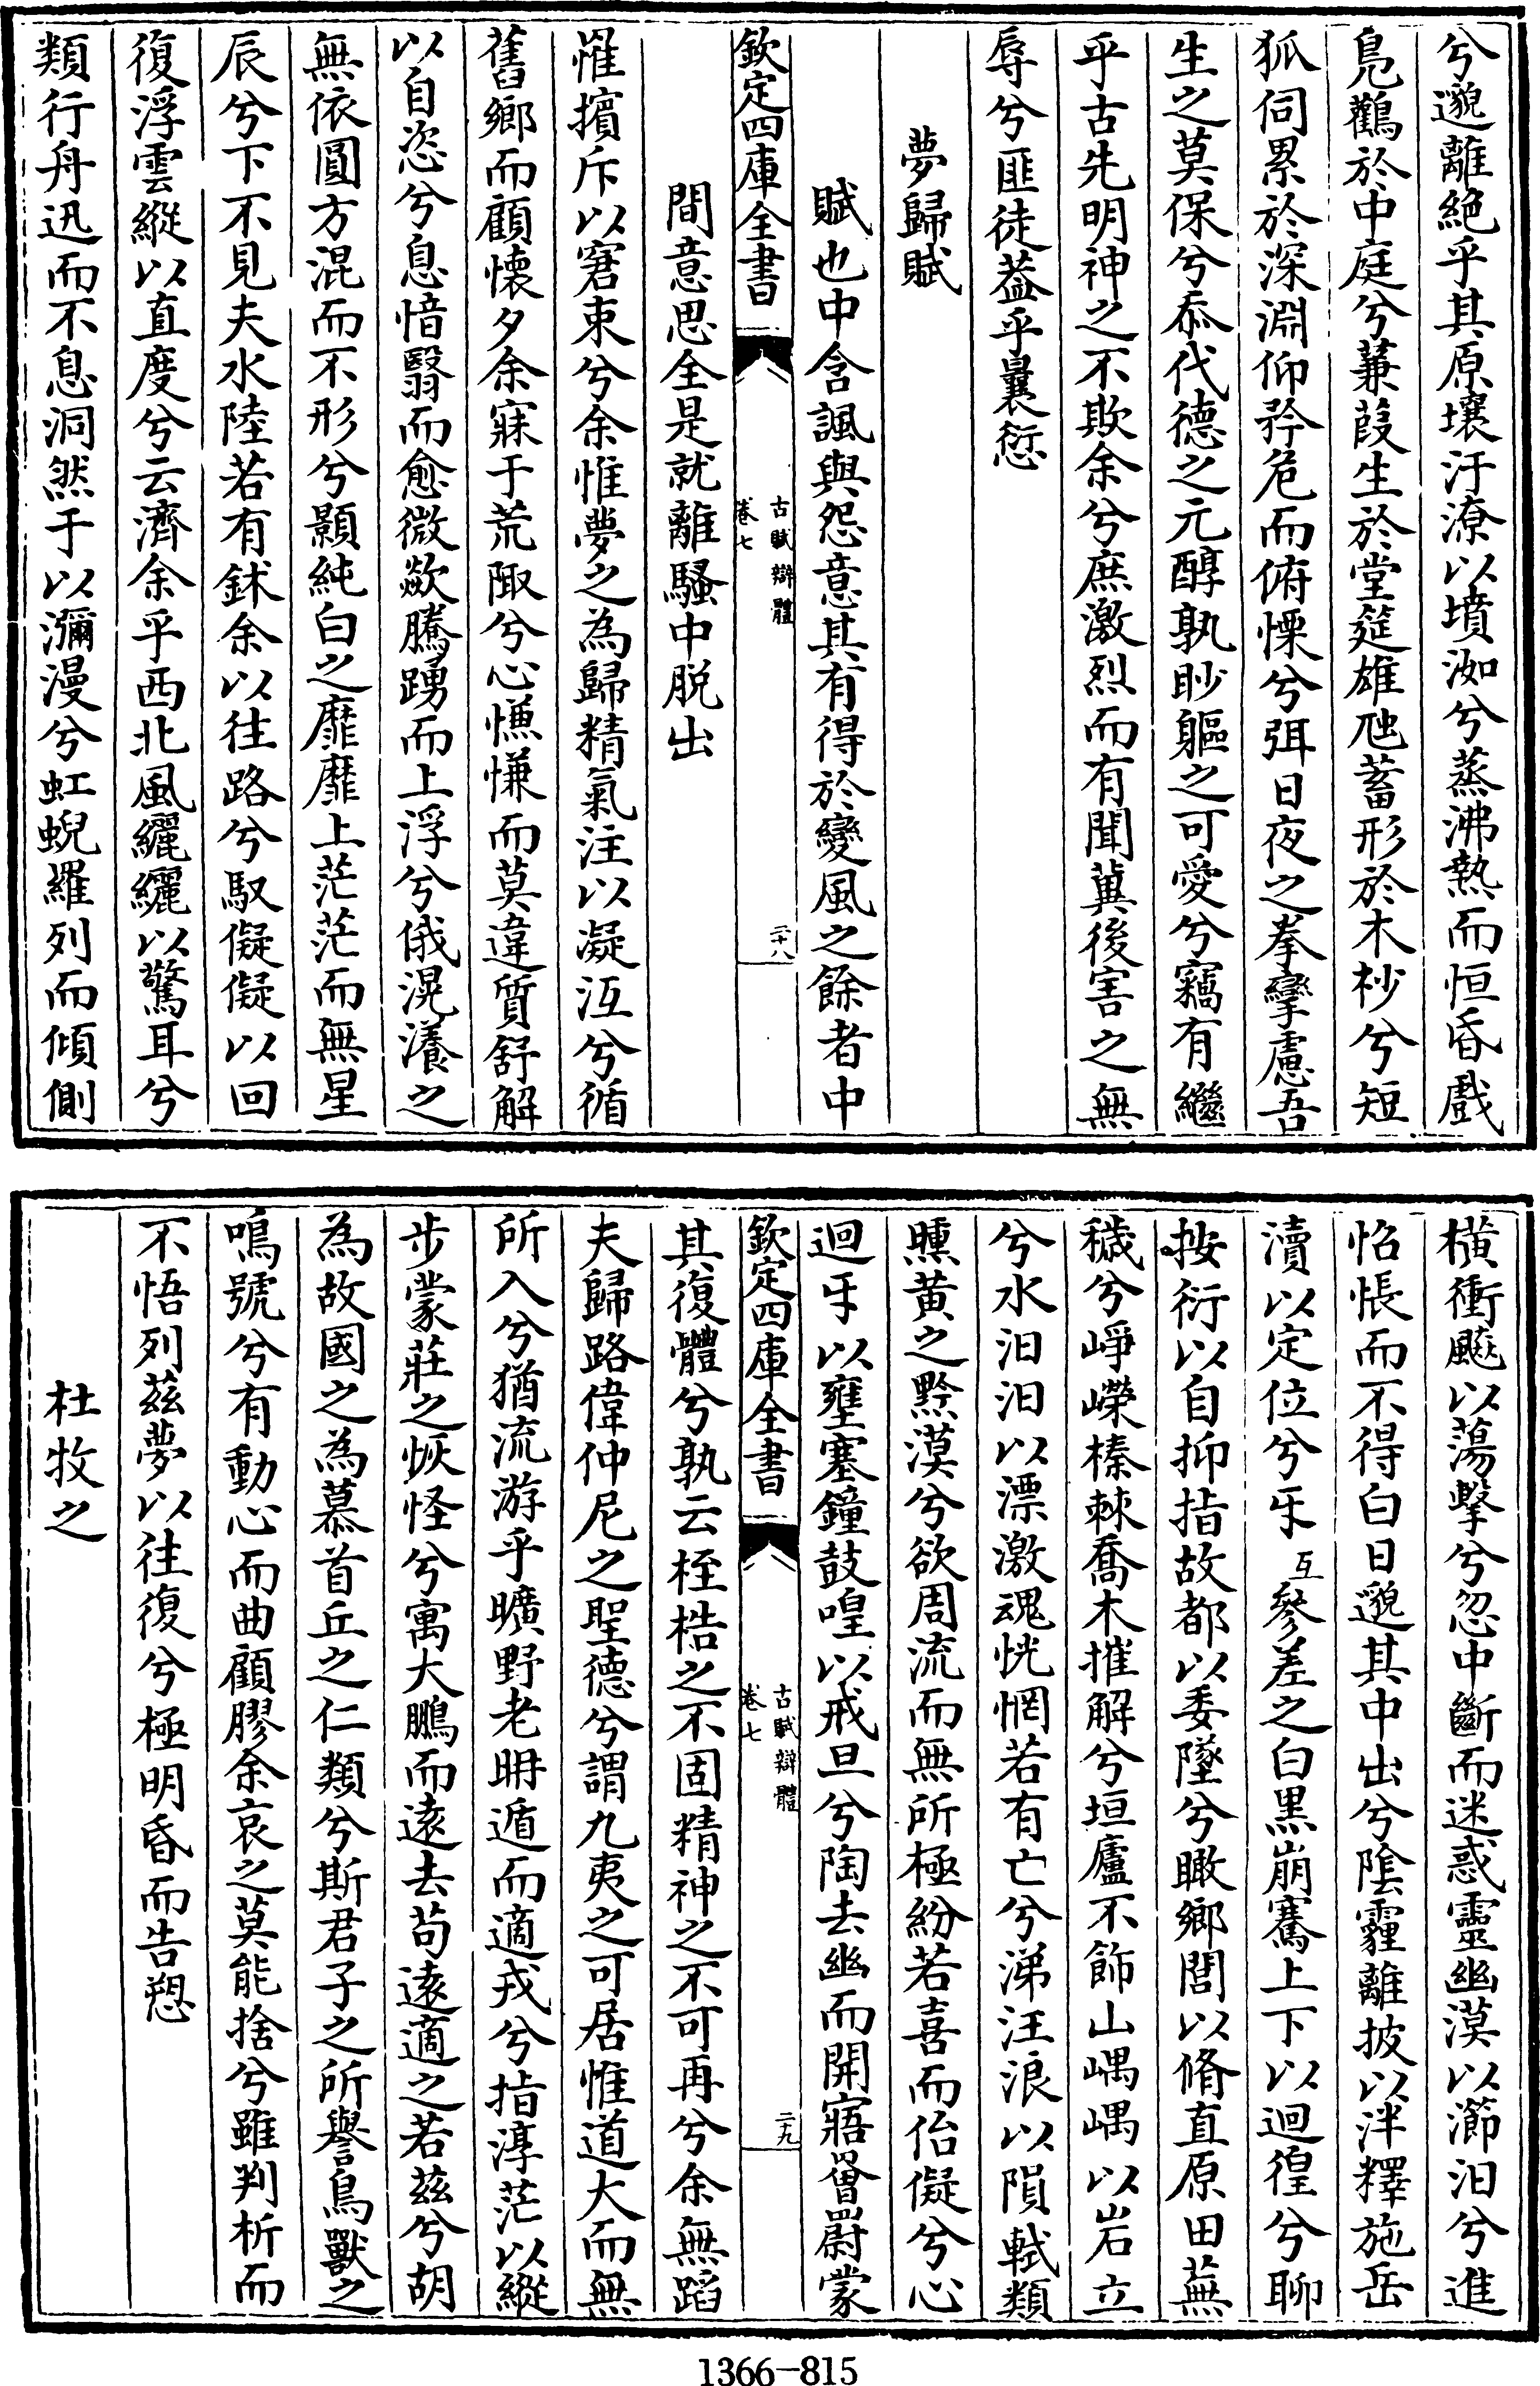 兮邈離絶乎其原壤汙潦以墳洳兮蒸沸熱而恒昏戲
鳧鸛於中庭兮蒹葭生於堂筵雄虺蓄形於木杪兮短
狐伺累於深淵仰矜危而俯慄兮弭日夜之拳攣慮吾
生之莫保兮忝代德之元醇孰眇軀之可愛兮竊有繼
乎古先明神之不欺余兮庶激烈而有聞冀後害之無
辱兮匪徒葢乎曩愆
夢歸賦
賦也中含諷與怨意其有得於變風之餘者中
欽定四庫全書
古賦辯體
卷七
二十八
間意思全是就離騷中脱出
罹擯斥以窘束兮余惟夢之為歸精氣注以凝沍兮循
舊鄉而顧懷夕余寐于荒陬兮心慊慊而莫違質舒解
以自恣兮息愔翳而愈微歘騰踴而上浮兮俄滉瀁之
無依圓方混而不形兮顥純白之靡靡上茫茫而無星
辰兮下不見夫水陸若有鉥余以往路兮馭儗儗以回
復浮雲縱以直度兮云濟余乎西北風纚纚以驚耳兮
類行舟迅而不息洞然于以瀰漫兮虹蜺羅列而傾側
橫衝飈以蕩擊兮忽中斷而迷惑靈幽漠以瀄汩兮進
怊悵而不得白日邈其中出兮陰霾離披以泮釋施岳
瀆以定位兮㸦
互
參差之白黒崩騫上下以迴徨兮聊
按衍以自抑指故都以委墜兮瞰鄉閭以脩直原田蕪
穢兮崢嶸榛棘喬木摧解兮垣廬不飾山嵎嵎以岩立
兮水汩汩以漂激魂恍惘若有亡兮涕汪浪以隕軾類
曛黄之黔漠兮欲周流而無所極紛若喜而佁儗兮心
迴㸦以壅塞鐘鼓喤以戒旦兮陶去幽而開寤罾罻蒙
欽定四庫全書
古賦辯體
卷七
二十九
其復體兮孰云桎梏之不固精神之不可再兮余無蹈
夫歸路偉仲尼之聖德兮謂九夷之可居惟道大而無
所入兮猶流游乎曠野老耼遁而適戎兮指淳茫以縱
步蒙莊之恢怪兮寓大鵬而逺去苟逺適之若兹兮胡
為故國之為慕首丘之仁類兮斯君子之所譽鳥獸之
鳴號兮有動心而曲顧膠余哀之莫能捨兮雖判析而
不悟列兹夢以往復兮極明昏而告愬
杜牧之
1366-815